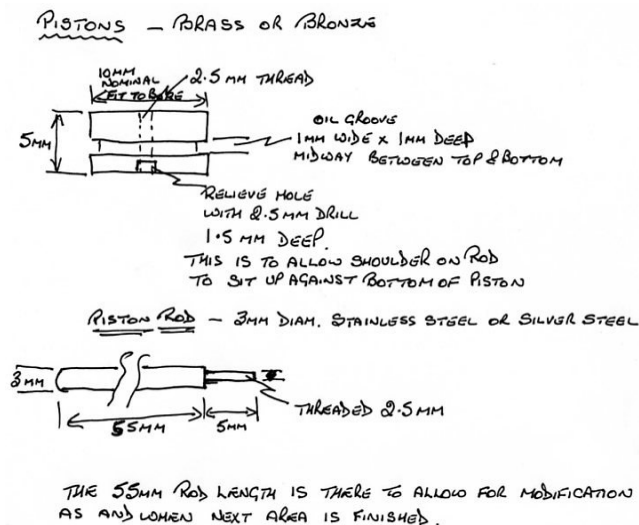 PISTONS – BRASS OR BRONZE
10MM
NOMINAL
FIT TO BORE
2.5 MM THREAD
5MM
OIL GROOVE
1MM WIDE X 1MM DEEP
MIDWAY BETWEEN TOP & BOTTOM
RELIEVE HOLE
WITH 2.5MM DRILL
1.5 MM DEEP.
THIS IS TO ALLOW SHOULDER ON ROD
TO SIT UP AGAINST BOTTOM OF PISTON
PISTON ROD – 3MM DIAM. STAINLESS STEEL OR SILVER STEEL
3MM
55MM
5MM
THREADED 2.5MM
THE 55MM ROD LENGTH IS THERE TO ALLOW FOR MODIFICATION
AS AND WHEN NEXT AREA IS FINISHED.